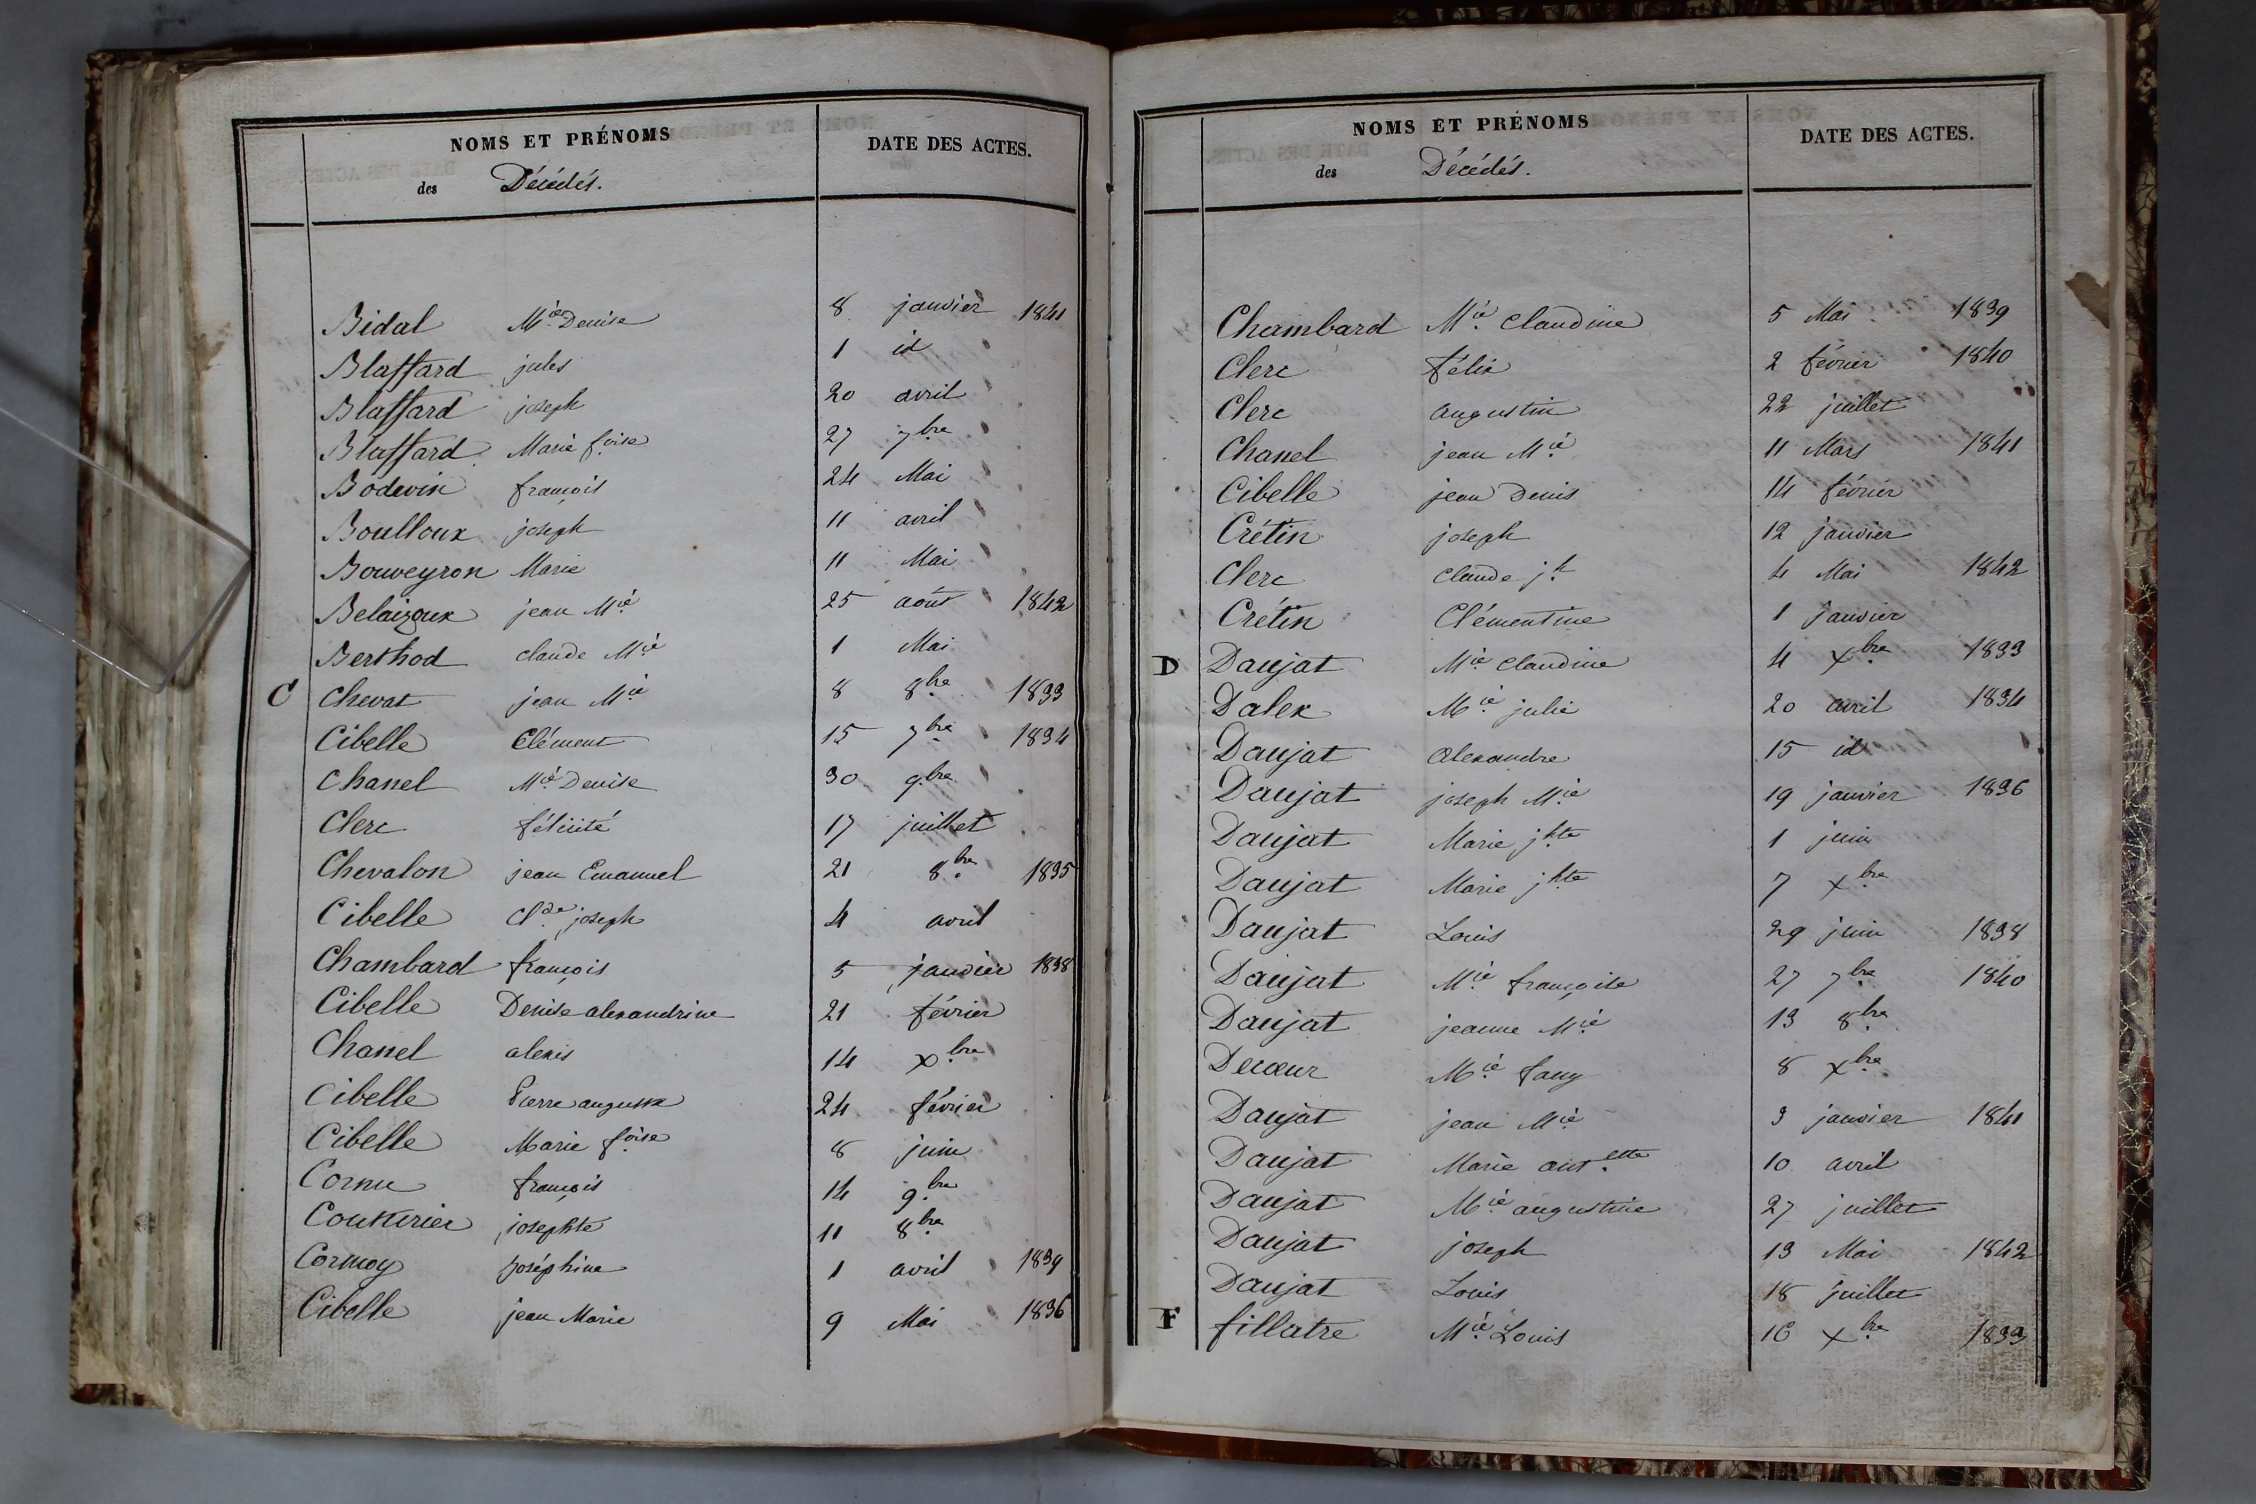 NOMS ET PRÉNOMS
des Décédés.
DATE DES ACTES.
Bidal Mie Denise 8 janvier 1841
Blaffard jules 1 id
Blaffard joseph 20 avril
Blaffard Marie foise 27 7bre
Bodevin françois 24 Mai
Boulloux joseph 11 avril
Bouveyron Marie 11 Mai
Belaizoux jean Mie 25 août 1842
Berthod claude Mie 1 Mai
C Chevat jean Mie 8 8bre 1833
Cibelle Clément 15 7bre 1834
Chanel Mie Denise 30 9bre
Clerc félicité 17 juillet
Chevalon jean Emanuel 21 8bre 1835
Cibelle Clde joseph 4 avril
Chambard françois 5 janvier 1838
Cibelle Denise alexandrine 21 février
Chanel alexis 14 xbre
Cibelle Pierre auguste 24 février
Cibelle Marie foise 8 juin
Cornu françois 14 9bre
Couturier josephte 11 8bre
Cormoy joséphine 1 avril 1839
Cibelle jean Marie 9 Mai 1836
NOMS ET PRÉNOMS
des Décédés.
DATE DES ACTES.
Chambard Mie Claudine 5 Mai 1839
Clerc félix 2 février 1840
Clerc augustin 22 juillet
Chanel jean Mie 11 Mars 1841
Cibelle jean Denis 14 février
Crétin joseph 12 janvier
Clerc Claude jh 4 Mai 1842
Crétin Clémentine 1 janvier
D Daujat Mie Claudine 4 xbre 1833
Dalex Mie julie 20 avril 1834
Daujat alexandre 15 id
Daujat joseph Mie 19 janvier 1836
Daujat Marie jhte 1 juin
Daujat Marie jhte 7 xbre
Daujat Louis 29 juin 1838
Daujat Mie françoise 27 7bre 1840
Daujat jeanne Mie 13 8bre
Decœur Mie fany 8 xbre
Daujat jean Mie 3 janvier 1841
Daujat Marie antette 10 avril
Daujat Mie augustine 27 juillet
Daujat joseph 13 Mai 1842
Daujat Louis 18 juillet
F fillatre Mie Louis 16 xbre 1833